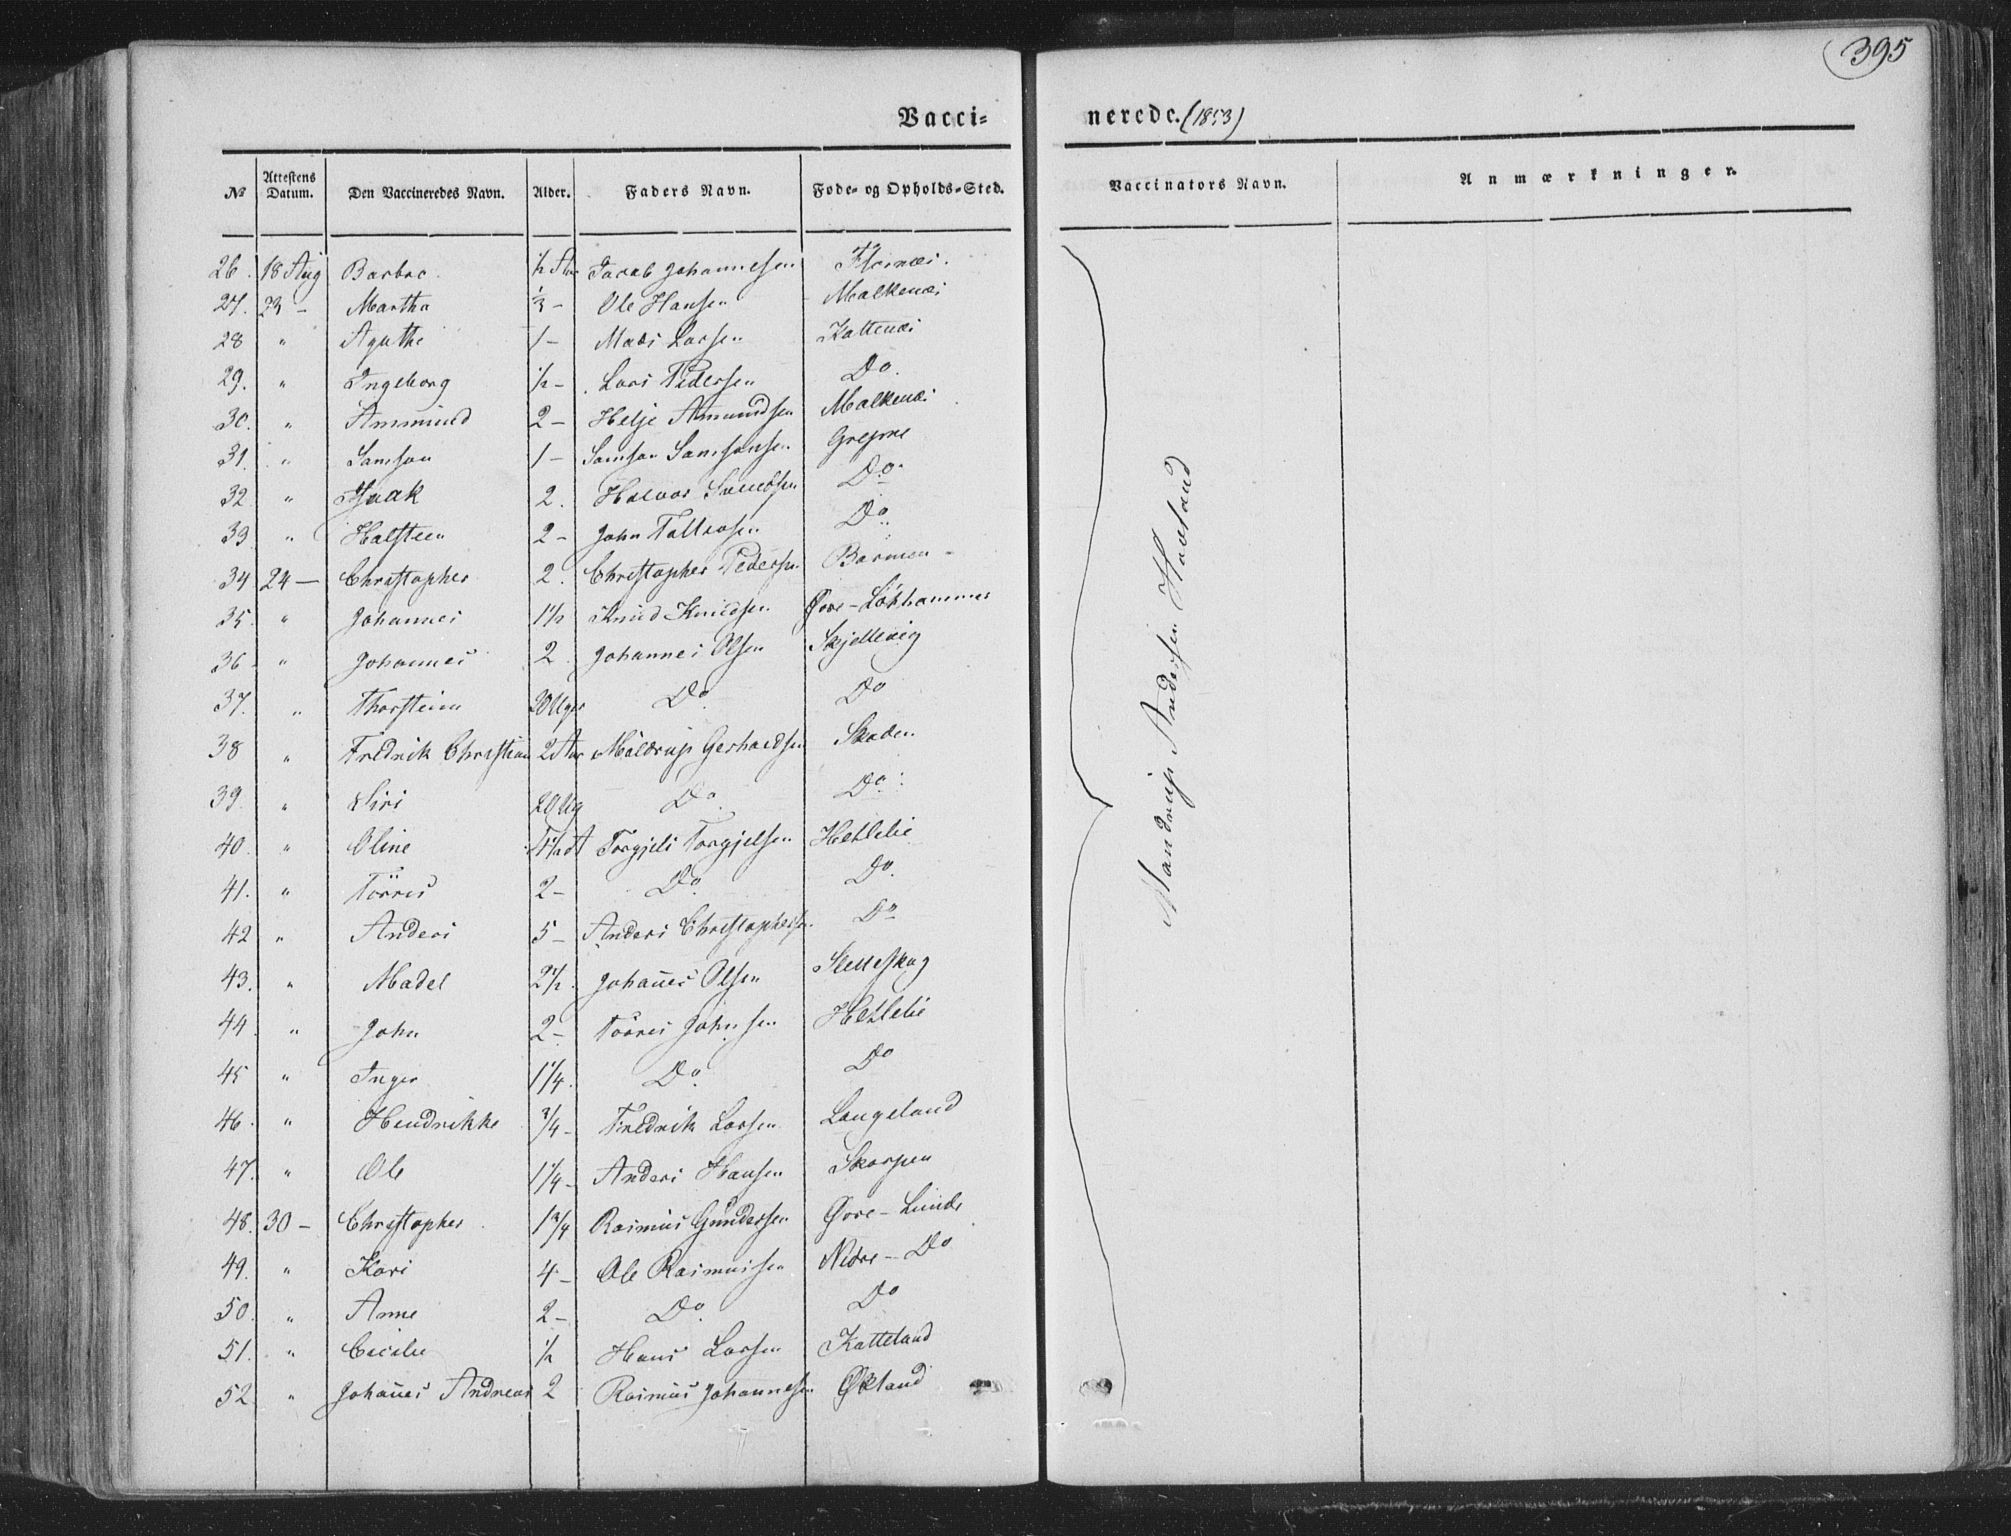 395
Vacci= nerede. (1853)
No Attestens Datum. Den Vaccineredes Navn. Alder. Faders Navn. Føde- og Opholds-Sted. Vaccinators Navn. Anmærkninger.
26. 18 Aug Barbro ½ Aar Jacob Johannesen
27. 23 – Martha ⅓ – Ole Hansen Malkenæs
28 " Agathe 1 – Mads Larsen Kattenæs
29. " Ingeborg ½ – Lars Pedersen Do.
30. " Ammund 2 – Helje Amundsen Malkenæs
31. " Samson 1 – Samson Samsonsen Grepne
32 " Isaak 2. Halvor Do.
33 " Halsteen 2 – John Do.
34 24 – Christopher 2. Christopher Pedersen Barmen –
35. " Johannes 1½ Knud Knudsen Øvre – Lökhammer
36 " Johannes 2. Johannes Olsen Skjellevig
37. " Thorsteinn 20 Uger Do. Do
38 " Fredrik Christian 2 Aar Möldrup Gerhardsen Skaden
39. " Siri 20 Ug Do. Do.
40. " Oline 1½ A Torgjels Torgjelsen Hetlelie
41. " Törres 2 – Do. Do.
42 " Anders 5 – Anders Christophersen Do
43. " Madel 2½. Johañes Olsen Sletteskog
44. " John 2 – Törres Johnsen Hetlelie
45 " Inger 1¼. Do. Do
46. " Hendrikke ¾ – Fredrik Larsen Langeland
47. " Ole 1¼ – Anders Hansen Skorpen
48. 30 – Christopher 1¾ Rasmus Gundersen Øvre – Lunde
49. " Kari 4 – Ole Rasmussen Nedre – Do
50. " Anne 2 – Do. Do
51. " Cicilie ½ Hans Larsen Katteland
52. " Johañes Andreas 2 Rasmus Johannesen Økland
Mandrup Andersen Haaland